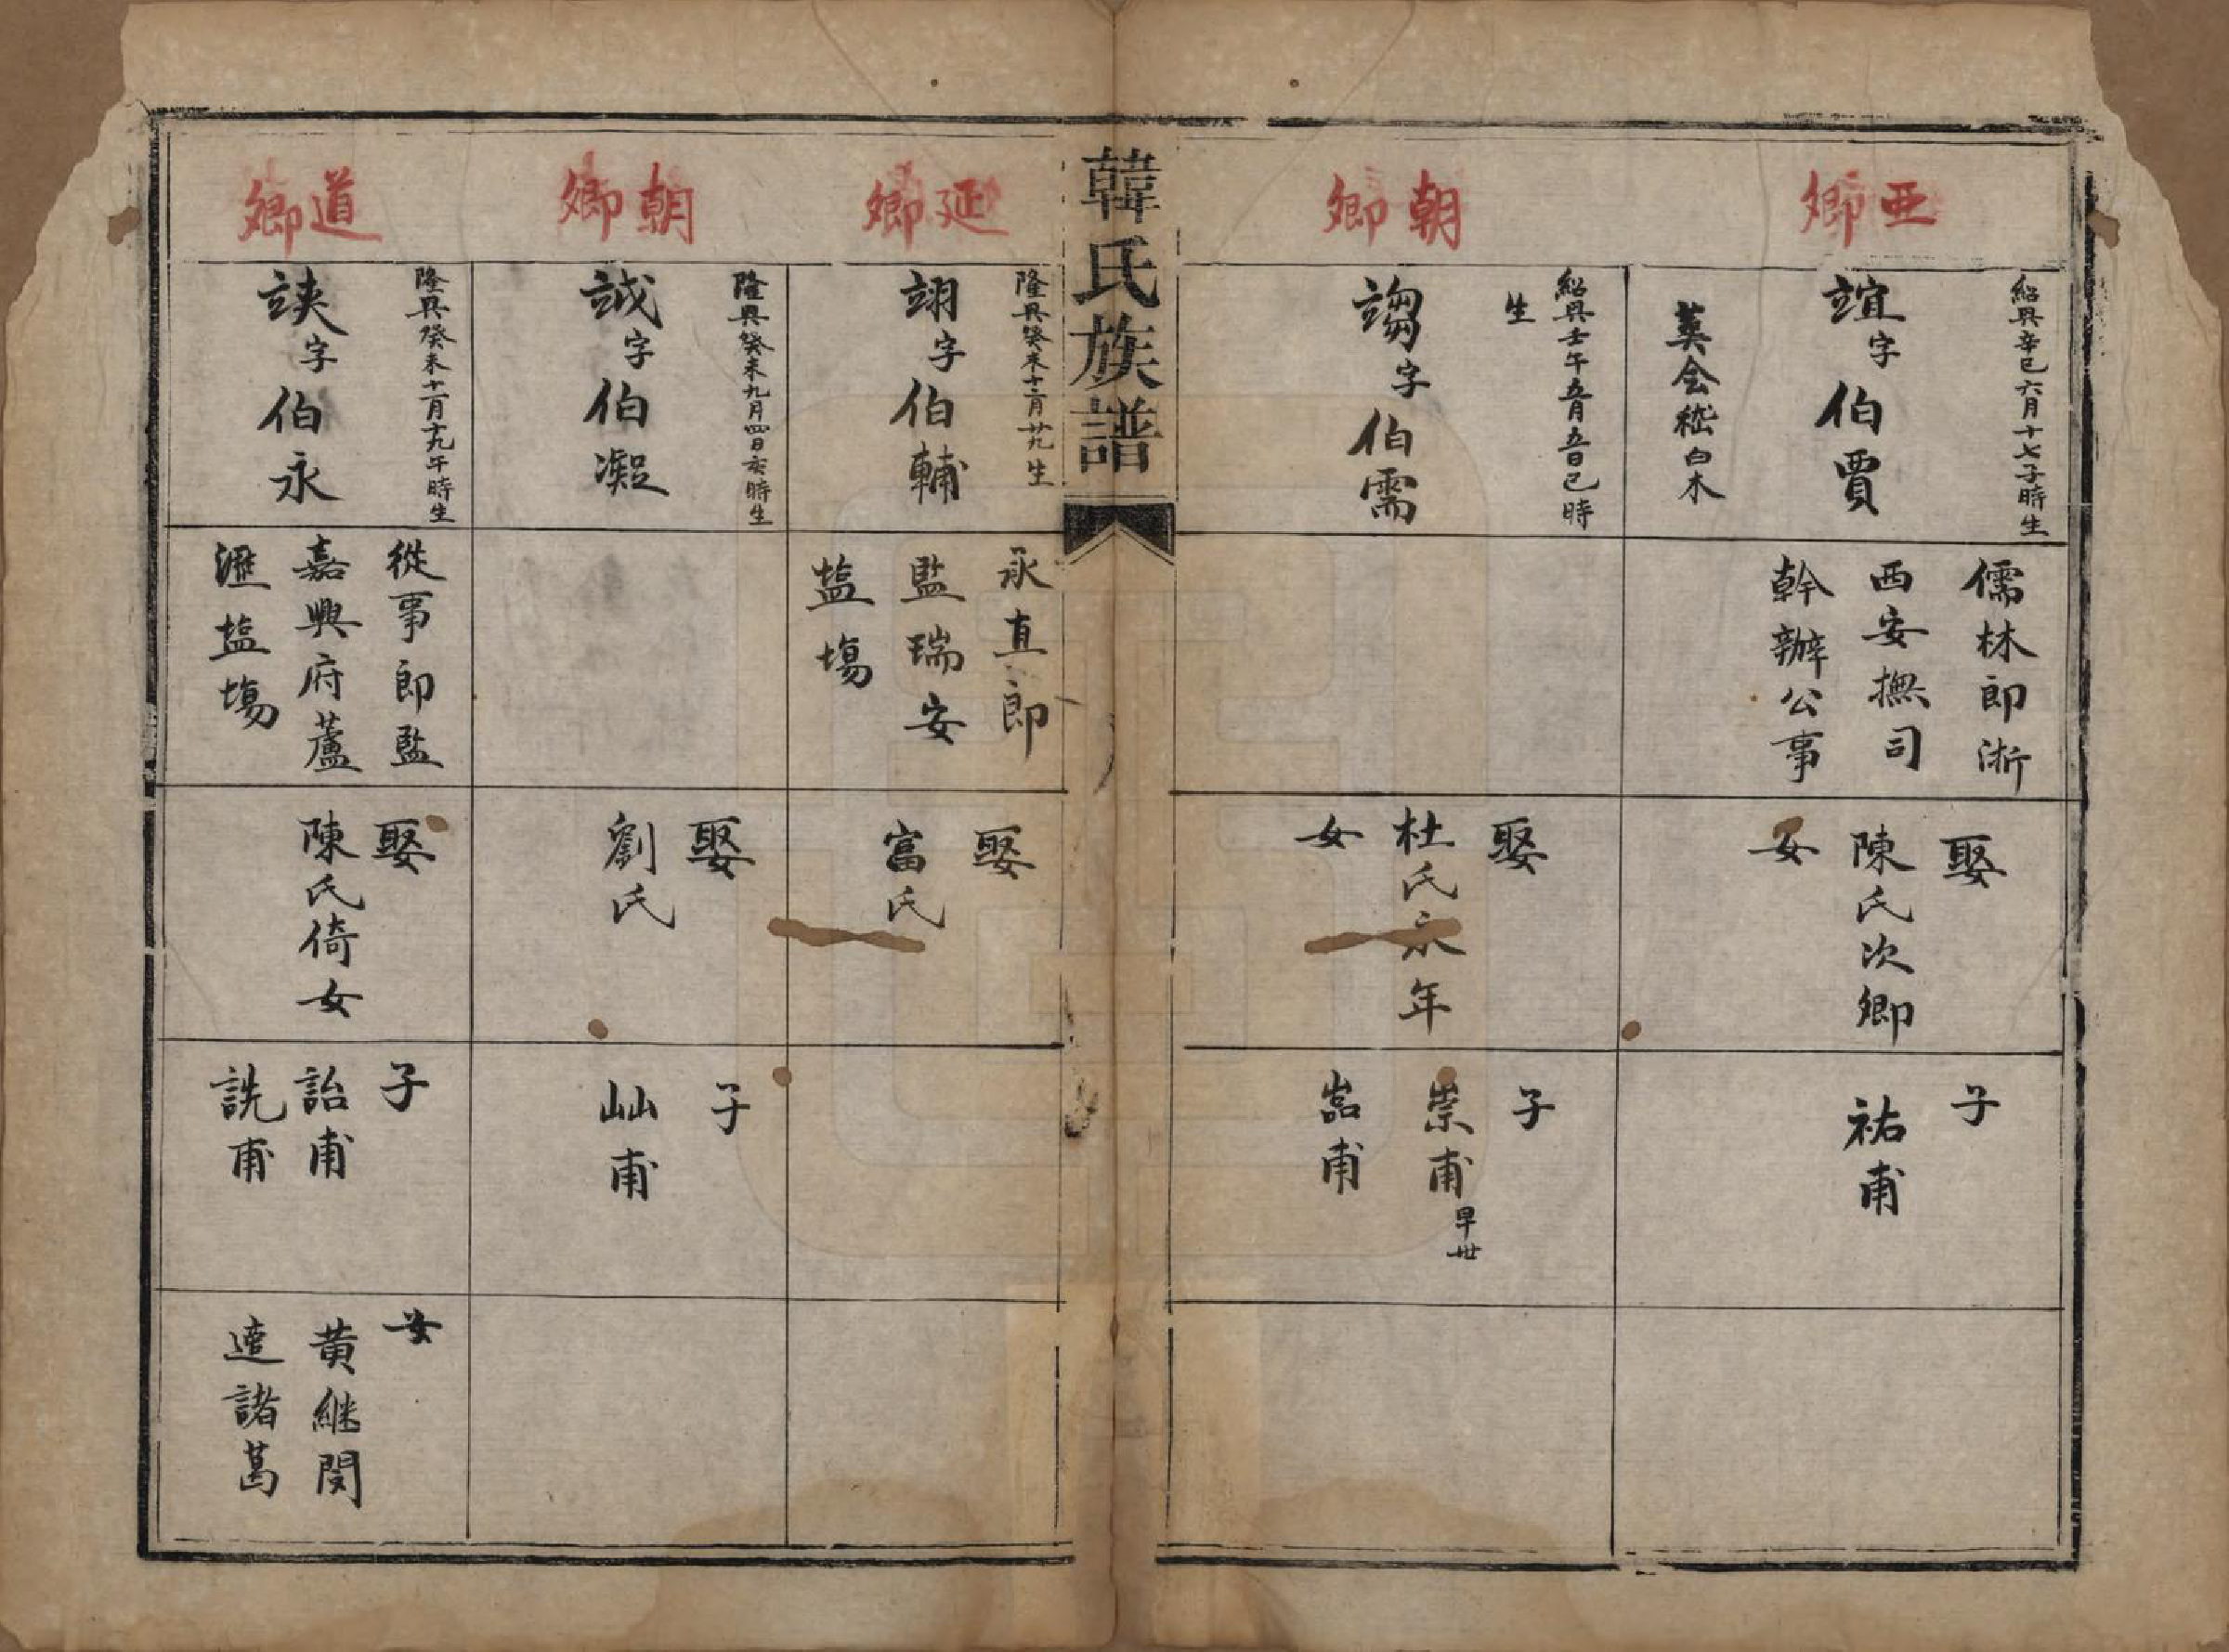 亞卿
紹興辛巳六月十七子時生
竩字伯賈
葬会嵇白木
儒林郎浙
西安撫司
幹辦公事
娶
陳氏次卿
女
子
祐甫
朝卿
紹興壬午五月五日巳時
生
字伯需
娶
杜氏永年
女
子
崇甫早世
嵓甫
韓氏族譜
延卿
隆興癸未十二月廿九生
翊字伯輔
承直郎
監瑞安
塩場
娶
富氏
朝卿
隆興癸未九月四日亥時生
字伯凝
娶
劉氏
子
屾甫
道卿
隆興癸未十二月十九午時生
字伯永
從事郎監
嘉興府蘆
瀝塩場
娶
陳氏倚女
子
詒甫
詵甫
女
黄継閔
逵諸葛